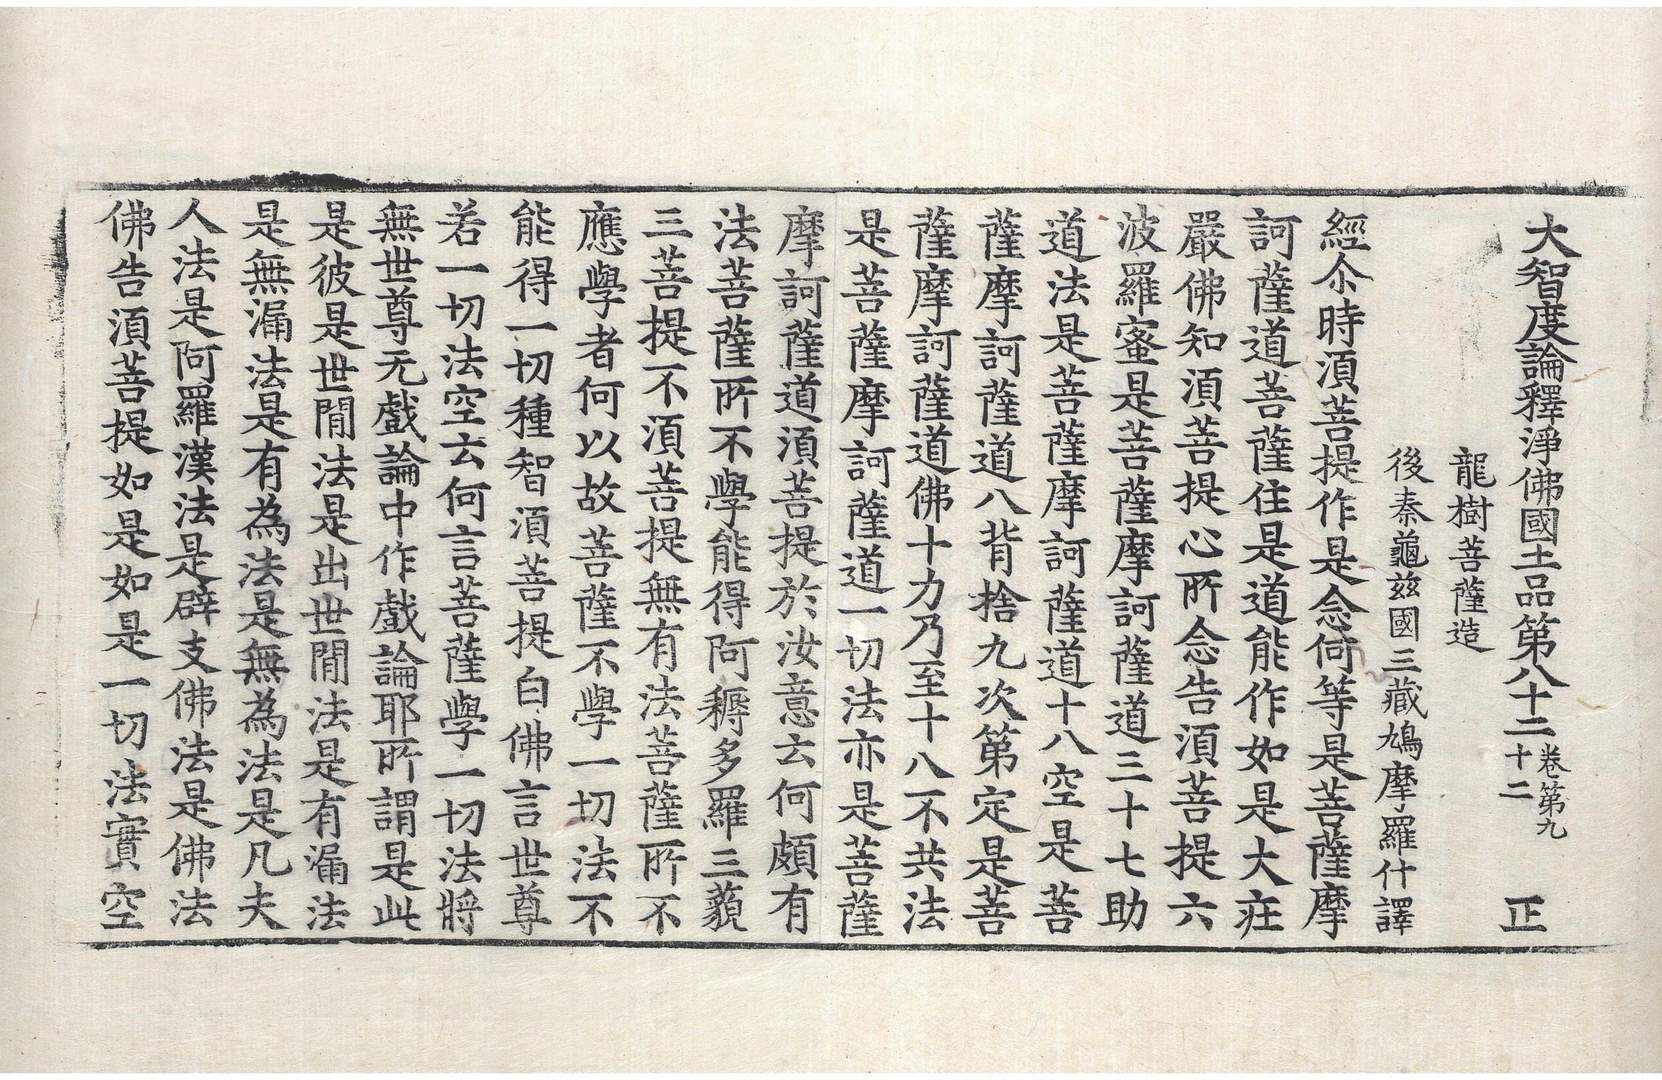 大智度論釋淨佛國土品第八十二卷第九十二 正
龍樹菩薩造
後秦龜茲國三藏鳩摩羅什譯
經尒時須菩提作是念何等是菩薩摩
訶薩道菩薩住是道能作如是大庄
嚴佛知須菩提心所念告須菩提六
波羅蜜是菩薩摩訶薩道三十七助
道法是菩薩摩訶薩道十八空是菩
薩摩訶薩道八背捨九次第定是菩
薩摩訶薩道佛十力乃至十八不共法
是菩薩摩訶薩道一切法亦是菩薩
摩訶薩道須菩提於汝意云何頗有
法菩薩所不學能得阿耨多羅三藐
三菩提不須菩提無有法菩薩所不
應學者何以故菩薩不學一切法不
能得一切種智須菩提白佛言世尊
若一切法空云何言菩薩學一切法將
無世尊无戲論中作戲論耶所謂是此
是彼是世間法是出世間法是有漏法
是無漏法是有為法是無為法是凡夫
人法是阿羅漢法是辟支佛法是佛法
佛告須菩提如是如是一切法實空